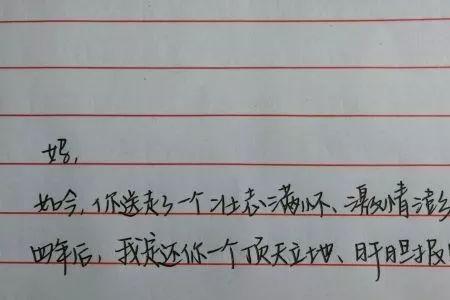 妈，
如今，你送走了一个壮志满怀、激情澎
四年后，我定还你一个顶天立地、肝胆报